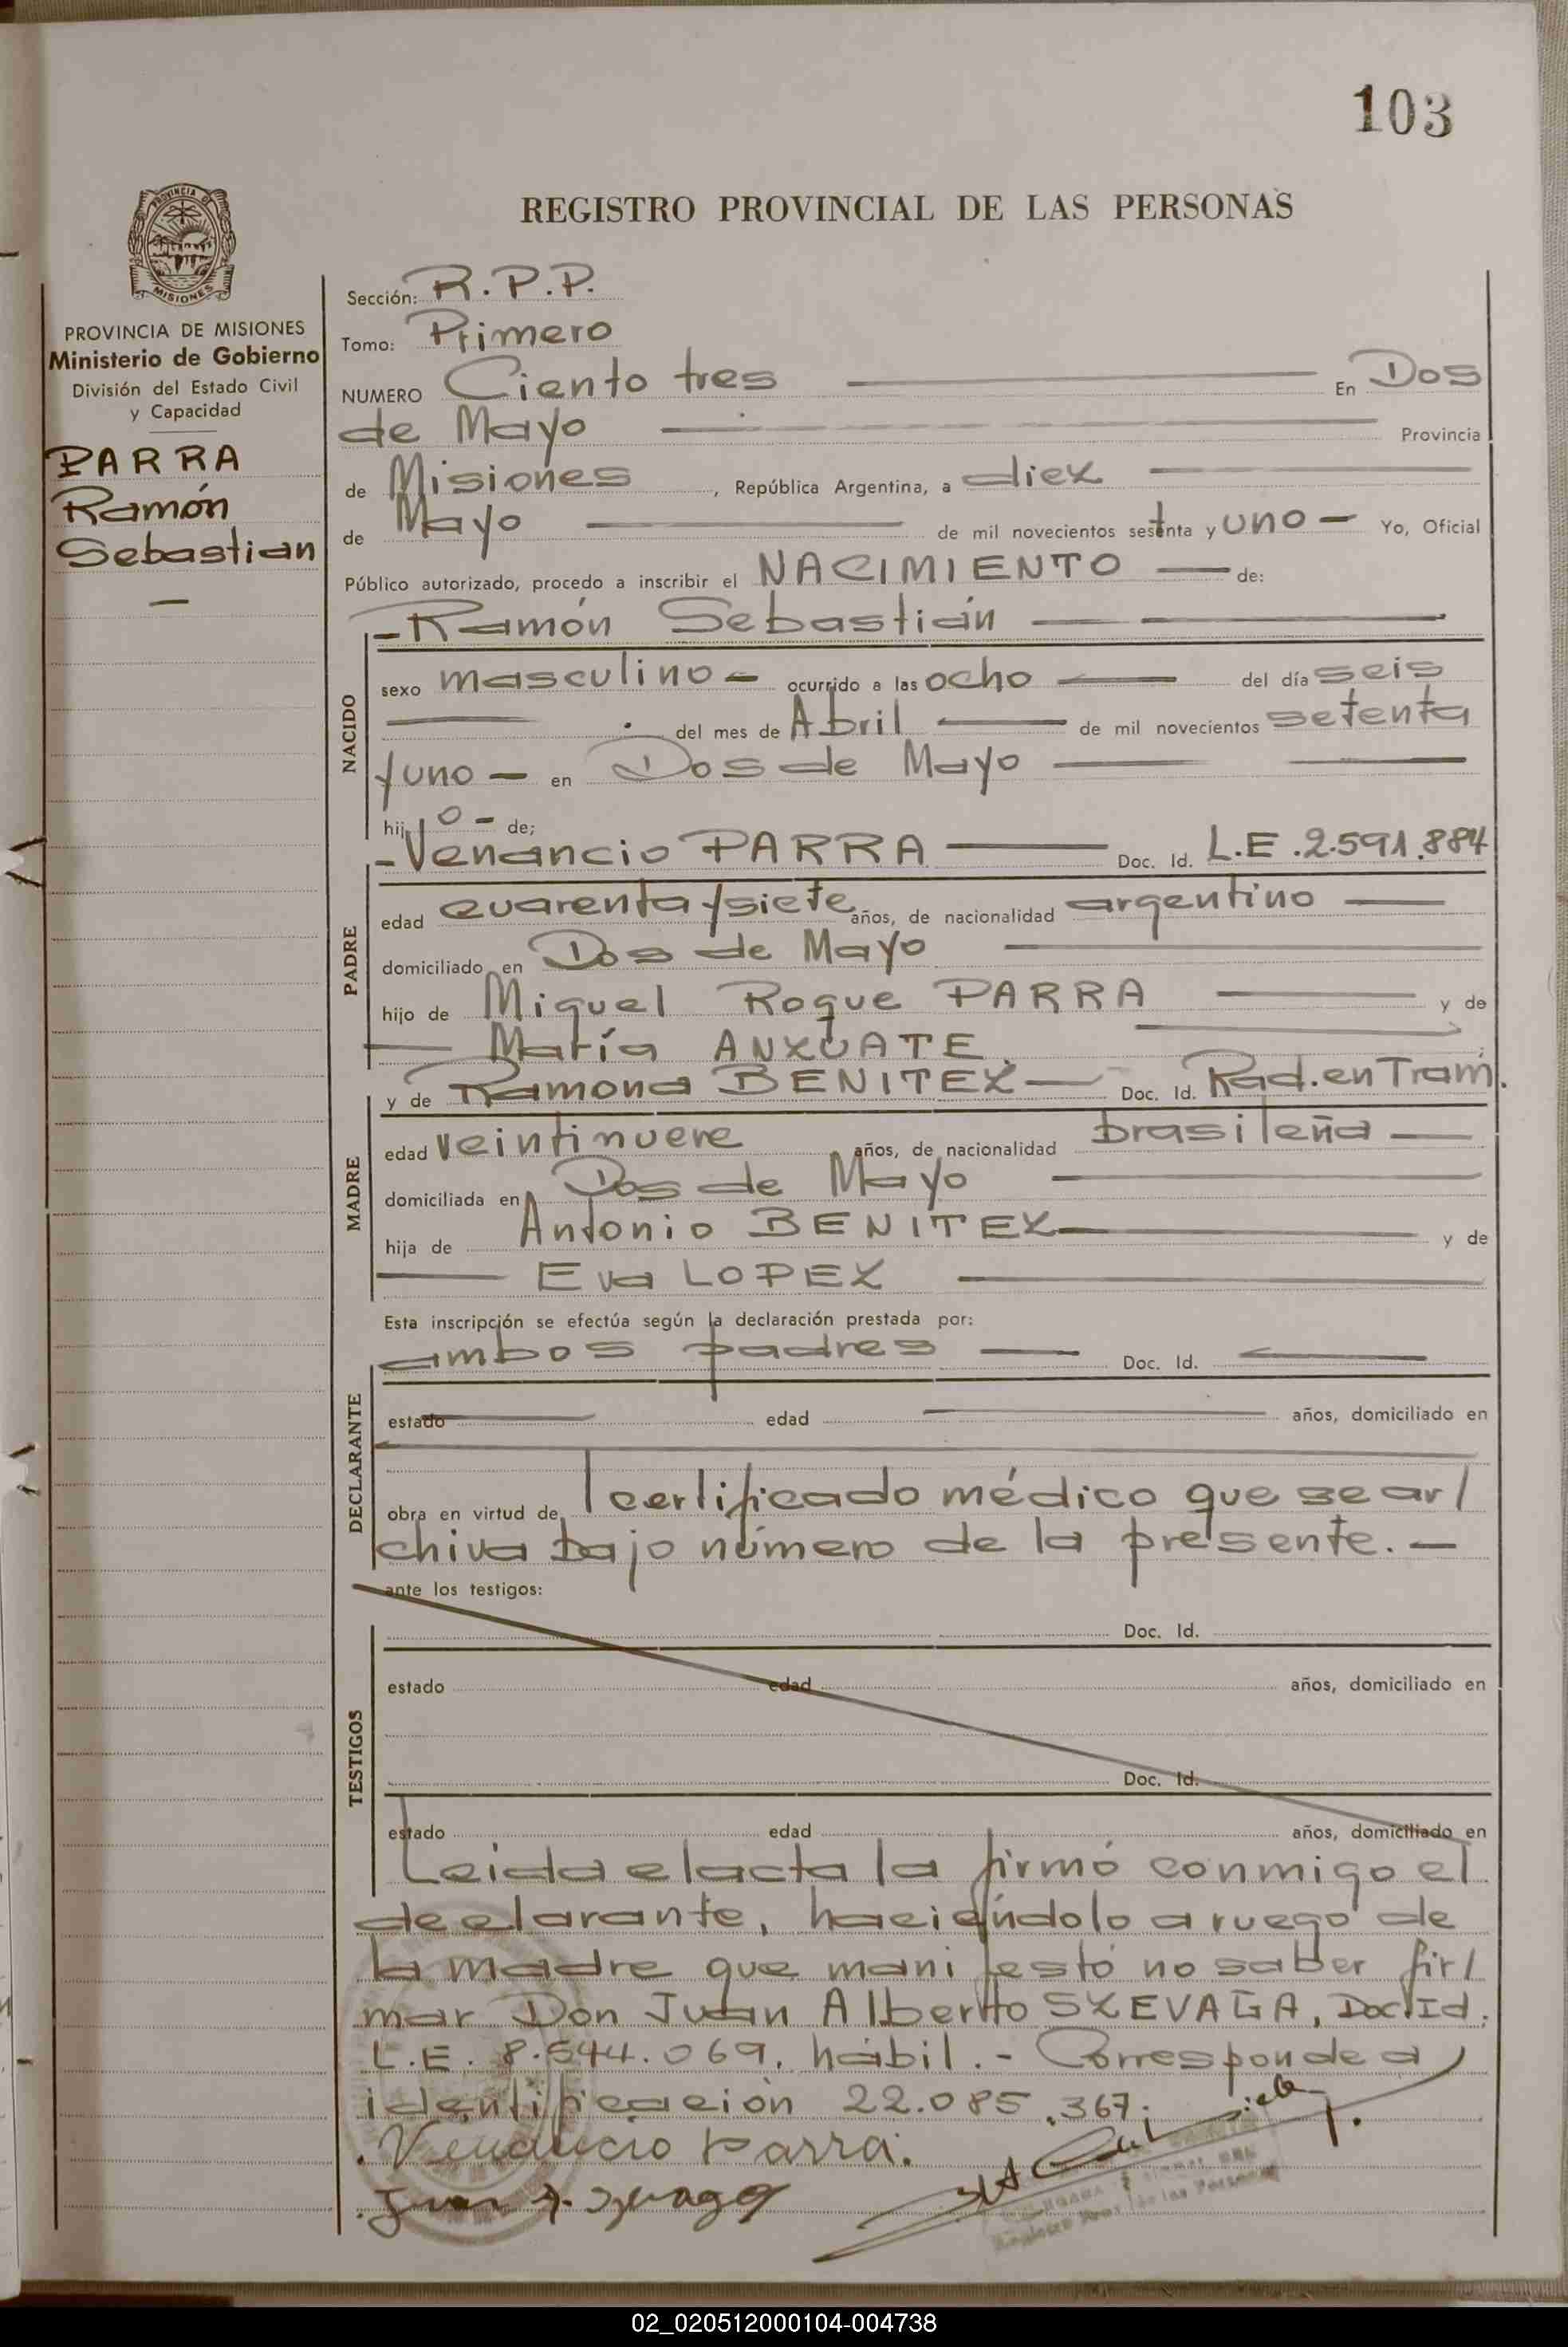 103
REGISTRO PROVINCIAL DE LAS PERSONAS
PROVINCIA DE MISIONES
Ministerio de Gobierno
División del Estado Civil
y Capacidad
PARRA
Ramón
Sebastian
Sección: R.P.P.
Tomo: Primero
NUMERO Ciento tres En Dos
de Mayo Provincia
de Misiones, República Argentina, a diez
de Mayo de mil novecientos setenta y uno — Yo, Oficial
Público autorizado, procedo a inscribir el NACIMIENTO — de:
NACIDO
- Ramón Sebastián
sexo masculino - ocurrido a las ocho del día seis
del mes de Abril de mil novecientos setenta
y uno - en Dos de Mayo
hijo - de;
PADRE
- Venancio PARRA Doc. Id. L.E. 2.591.884
edad cuarenta y siete años, de nacionalidad argentino
domiciliado en Dos de Mayo
hijo de Miguel Roque PARRA y de
María ANZUATE.
MADRE
y de Ramona BENITEZ — Doc. Id. Rad. en Tram.
edad veintinueve años, de nacionalidad brasileña
domiciliada en Dos de Mayo
hija de Antonio BENITEZ y de
Eva LOPEZ
Esta inscripción se efectúa según la declaración prestada por:
DECLARANTE
ambos padres — Doc. Id.
estado edad años, domiciliado en
obra en virtud de certificado médico que se ar/
chiva bajo número de la presente. —
ante los testigos:
TESTIGOS
Doc. Id.
estado edad años, domiciliado en
Doc. Id.
estado edad años, domiciliado en
Leida el acta la firmó conmigo el
declarante, haciéndolo a ruego de
la madre que manifestó no saber fir/
mar Don Juan Alberto SZEVAGA, Doc. Id.
L.E. 8.544.069, hábil. - Corresponde a
identificación 22.085.367.
Venancio Parra.
Juan A. Szevaga
02_020512000104-004738